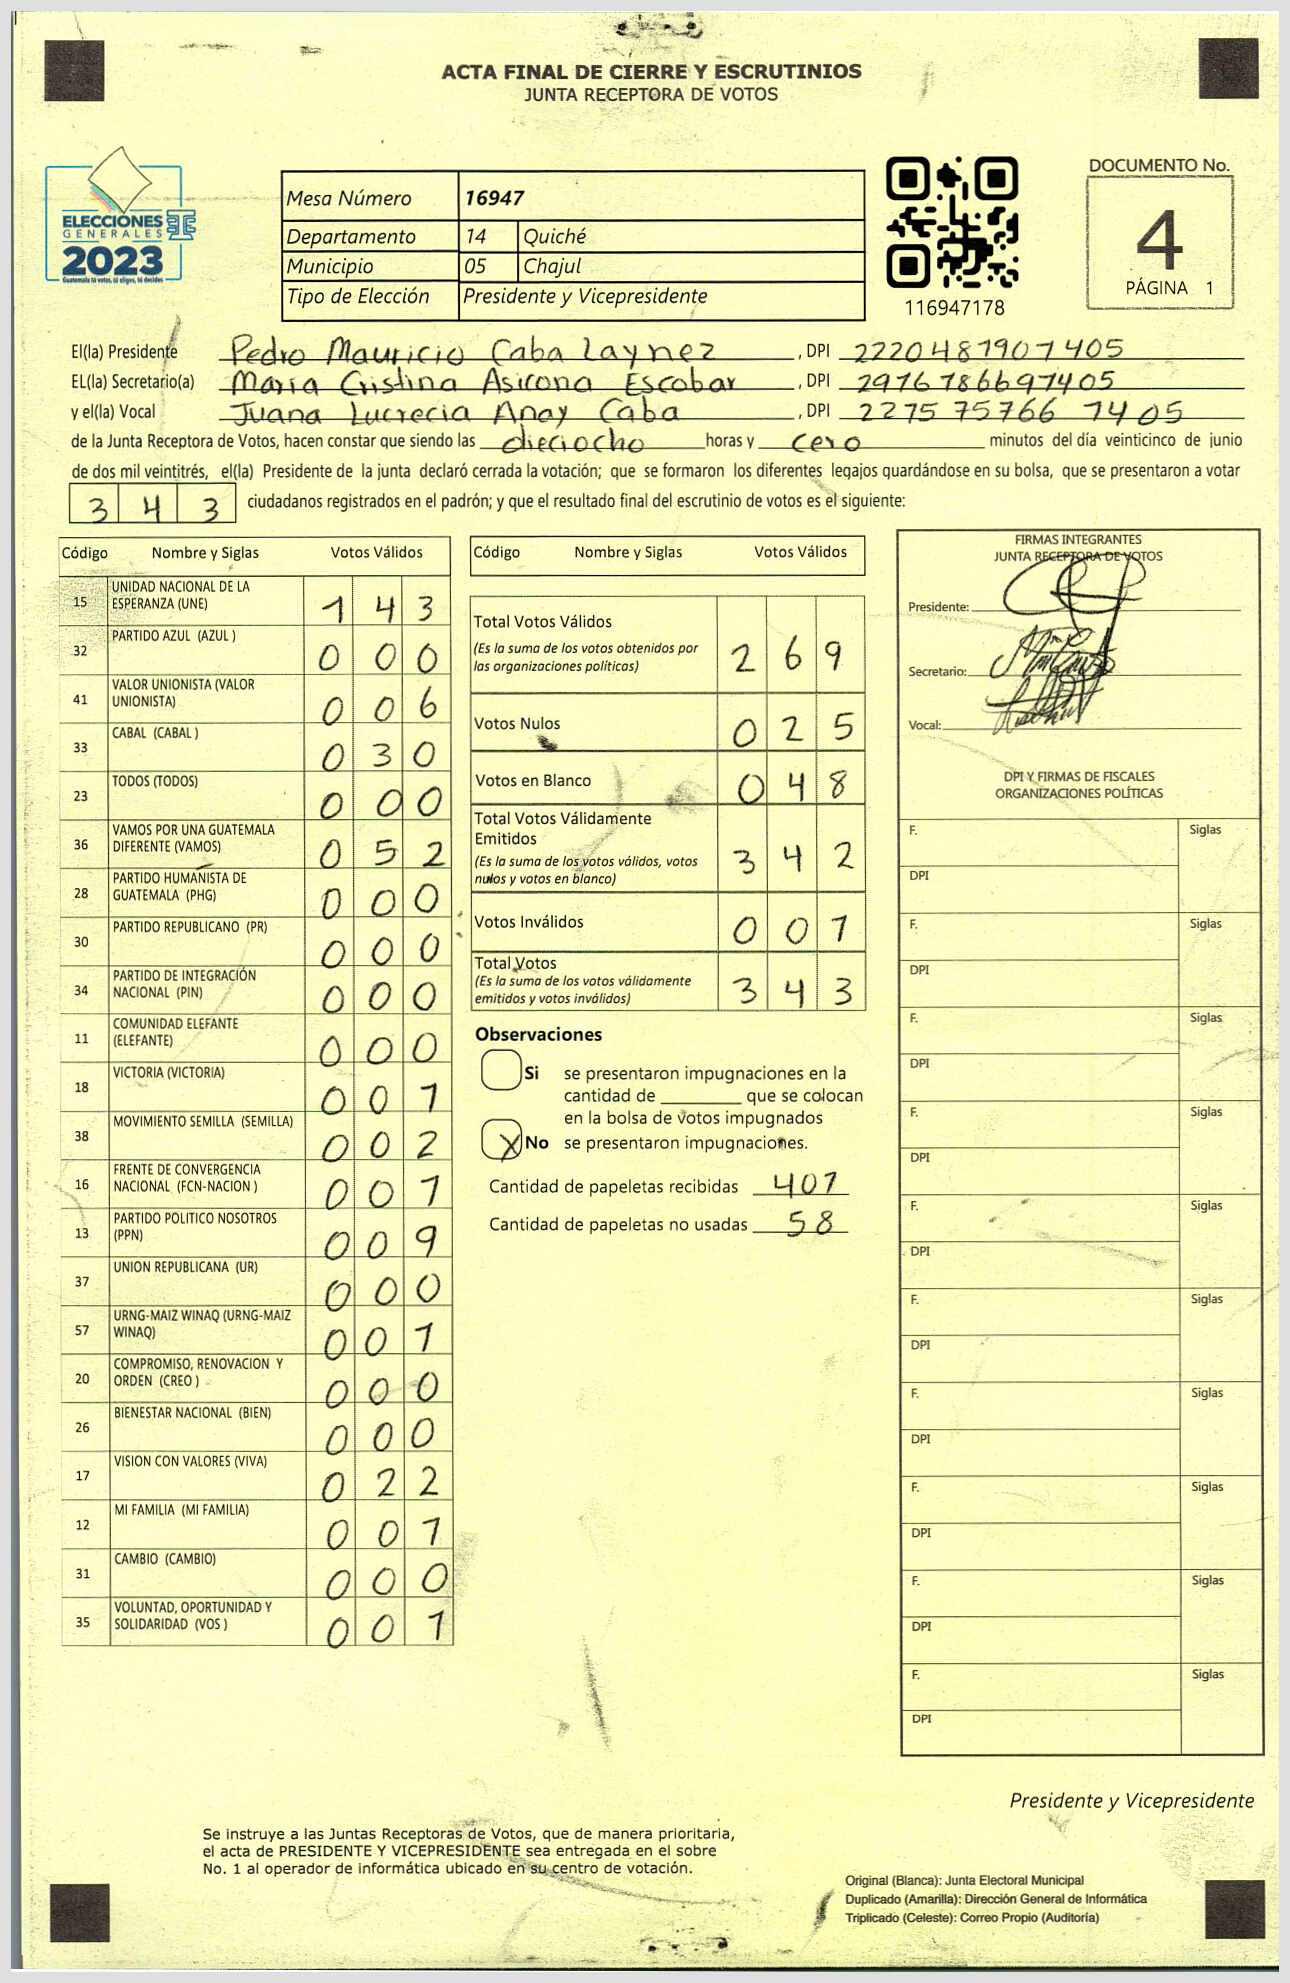 ACTA FINAL DE CIERRE Y ESCRUTINIOS
JUNTA RECEPTORA DE VOTOS
ELECCIONES
GENERALES
2023
Guatemala tú votas, tú eliges, tú decides
Mesa Número 16947
Departamento 14 Quiché
Municipio 05 Chajul
Tipo de Elección Presidente y Vicepresidente
116947178
DOCUMENTO No.
4
PÁGINA 1
El(la) Presidente Pedro Mauricio Caba Laynez , DPI 2220487907405
EL(la) Secretario(a) Maria Cristina Asicona Escobar , DPI 2976786697405
y el(la) Vocal Juana Lucrecia Anay Caba , DPI 2275 75766 7405
de la Junta Receptora de Votos, hacen constar que siendo las dieciocho horas y cero minutos del día veinticinco de junio
de dos mil veintitrés, el(la) Presidente de la junta declaró cerrada la votación; que se formaron los diferentes legajos guardándose en su bolsa, que se presentaron a votar
3 4 3 ciudadanos registrados en el padrón; y que el resultado final del escrutinio de votos es el siguiente:
Código Nombre y Siglas Votos Válidos
15 UNIDAD NACIONAL DE LA ESPERANZA (UNE) 1 4 3
32 PARTIDO AZUL (AZUL ) 0 0 0
41 VALOR UNIONISTA (VALOR UNIONISTA) 0 0 6
33 CABAL (CABAL ) 0 3 0
23 TODOS (TODOS) 0 0 0
36 VAMOS POR UNA GUATEMALA DIFERENTE (VAMOS) 0 5 2
28 PARTIDO HUMANISTA DE GUATEMALA (PHG) 0 0 0
30 PARTIDO REPUBLICANO (PR) 0 0 0
34 PARTIDO DE INTEGRACIÓN NACIONAL (PIN) 0 0 0
11 COMUNIDAD ELEFANTE (ELEFANTE) 0 0 0
18 VICTORIA (VICTORIA) 0 0 1
38 MOVIMIENTO SEMILLA (SEMILLA) 0 0 2
16 FRENTE DE CONVERGENCIA NACIONAL (FCN-NACION ) 0 0 1
13 PARTIDO POLITICO NOSOTROS (PPN) 0 0 9
37 UNION REPUBLICANA (UR) 0 0 0
57 URNG-MAIZ WINAQ (URNG-MAIZ WINAQ) 0 0 1
20 COMPROMISO, RENOVACION Y ORDEN (CREO ) 0 0 0
26 BIENESTAR NACIONAL (BIEN) 0 0 0
17 VISION CON VALORES (VIVA) 0 2 2
12 MI FAMILIA (MI FAMILIA) 0 0 1
31 CAMBIO (CAMBIO) 0 0 0
35 VOLUNTAD, OPORTUNIDAD Y SOLIDARIDAD (VOS ) 0 0 1
Código Nombre y Siglas Votos Válidos
Total Votos Válidos
(Es la suma de los votos obtenidos por
las organizaciones políticas) 2 6 9
Votos Nulos 0 2 5
Votos en Blanco 0 4 8
Total Votos Válidamente
Emitidos
(Es la suma de los votos válidos, votos
nulos y votos en blanco) 3 4 2
Votos Inválidos 0 0 1
Total Votos
(Es la suma de los votos válidamente
emitidos y votos inválidos) 3 4 3
Observaciones
Si se presentaron impugnaciones en la
cantidad de ________ que se colocan
en la bolsa de votos impugnados
X No se presentaron impugnaciones.
Cantidad de papeletas recibidas 401
Cantidad de papeletas no usadas 58
FIRMAS INTEGRANTES
JUNTA RECEPTORA DE VOTOS
Presidente:
Secretario:
Vocal:
DPI Y FIRMAS DE FISCALES
ORGANIZACIONES POLÍTICAS
F. Siglas
DPI
F. Siglas
DPI
F. Siglas
DPI
F. Siglas
DPI
F. Siglas
DPI
F. Siglas
DPI
F. Siglas
DPI
F. Siglas
DPI
F. Siglas
DPI
F. Siglas
DPI
Presidente y Vicepresidente
Se instruye a las Juntas Receptoras de Votos, que de manera prioritaria,
el acta de PRESIDENTE Y VICEPRESIDENTE sea entregada en el sobre
No. 1 al operador de informática ubicado en su centro de votación.
Original (Blanca): Junta Electoral Municipal
Duplicado (Amarilla): Dirección General de Informática
Triplicado (Celeste): Correo Propio (Auditoría)